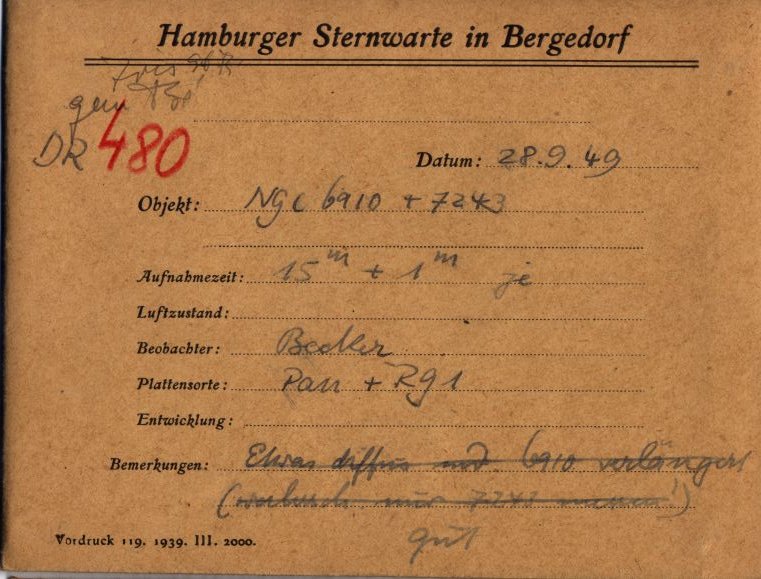 Hamburger Sternwarte in Bergedorf
gem
DR 480
Datum: 28.9.49
Objekt: NGC 6910 + 7243
Aufnahmezeit: 15m + 1m je
Luftzustand:
Beobachter: Becker
Plattensorte: Pan + RG1
Entwicklung:
Bemerkungen: Etwas diffus und 6910 verlängert
( nur 7243 !)
gut
Vordruck 119. 1939. III. 2000.